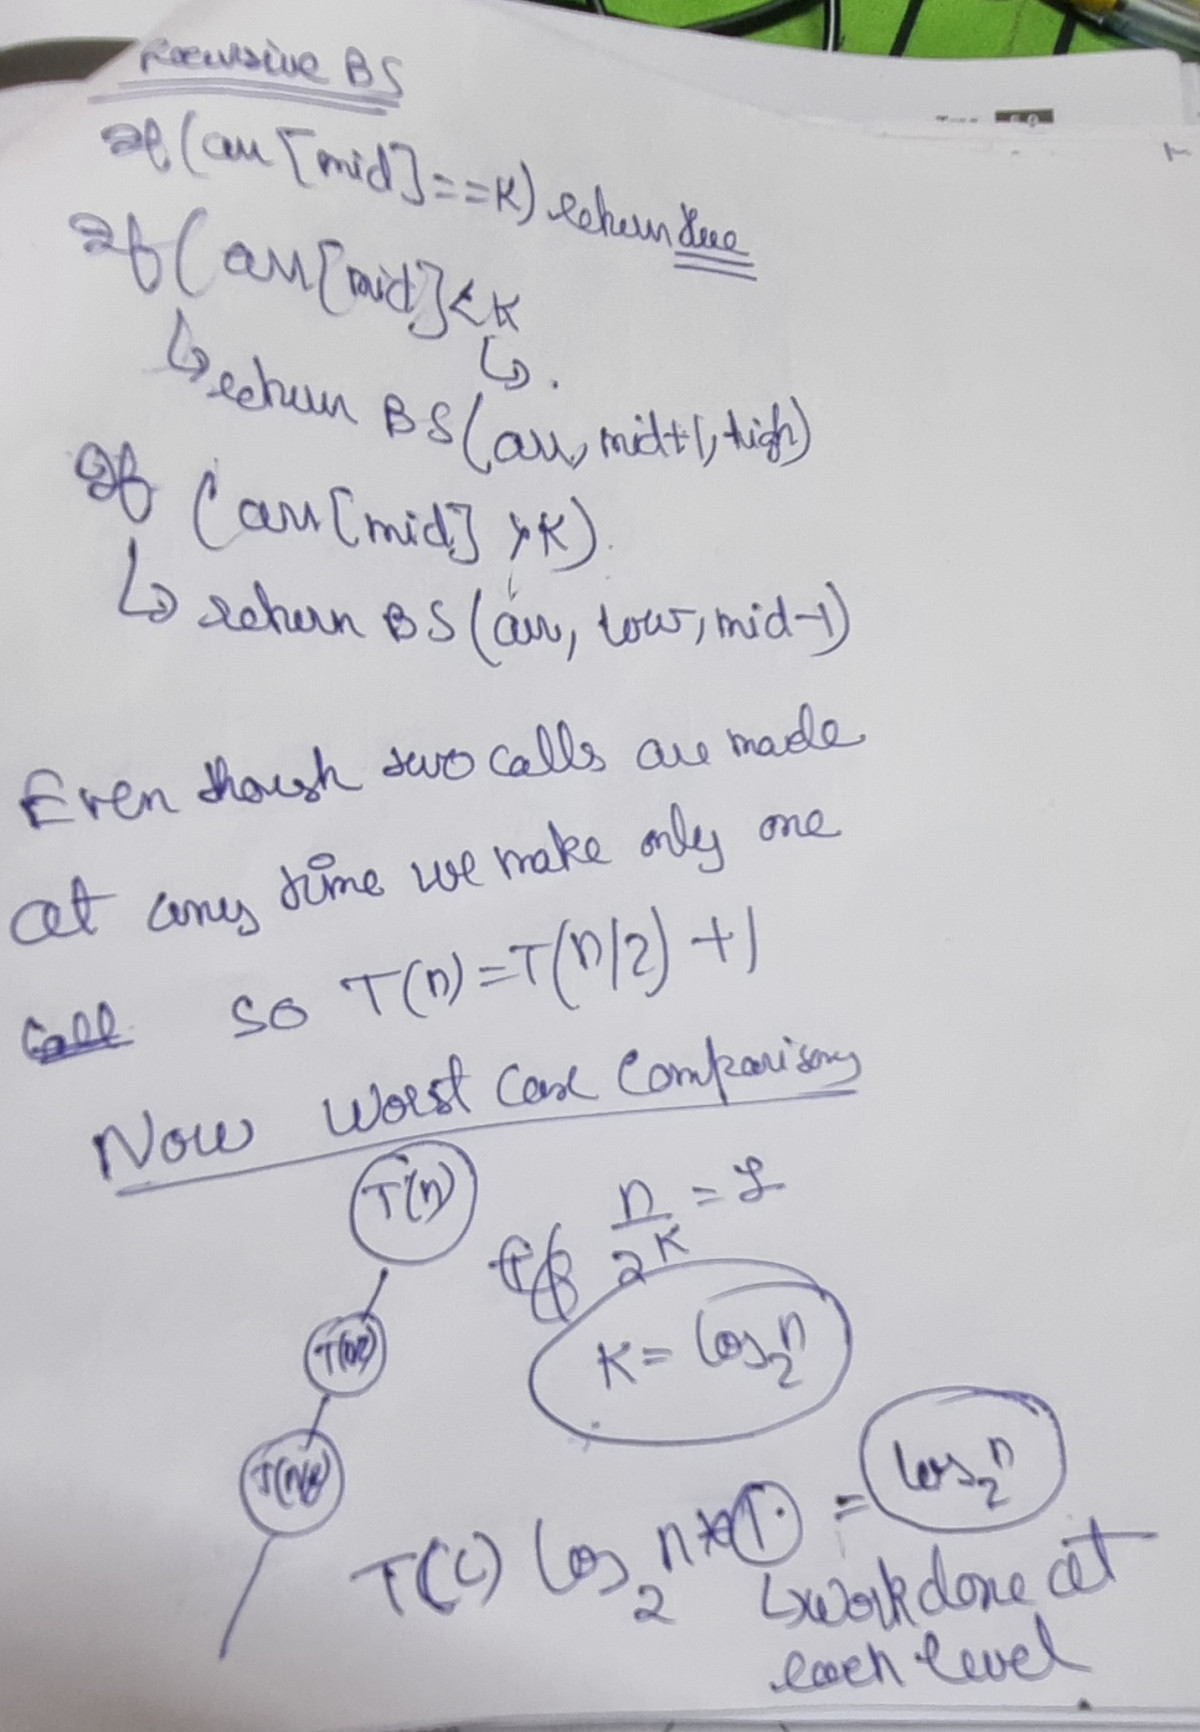 Recursive BS
If (arr[mid]==K) return true
If (arr[mid]<K
↳ return BS(arr, mid+1, high)
If (arr[mid] >K)
↳ return BS(arr, low, mid-1)
Even though two calls are made
at any time we make only one
call so T(n)=T(n/2)+1
Now Worst Case Comparisons
T(n)
n/2^K = 1
T(n/2)
K = log₂n
T(n/4)
log₂n
T(C) log₂n * 1 =
↳ work done at
each level